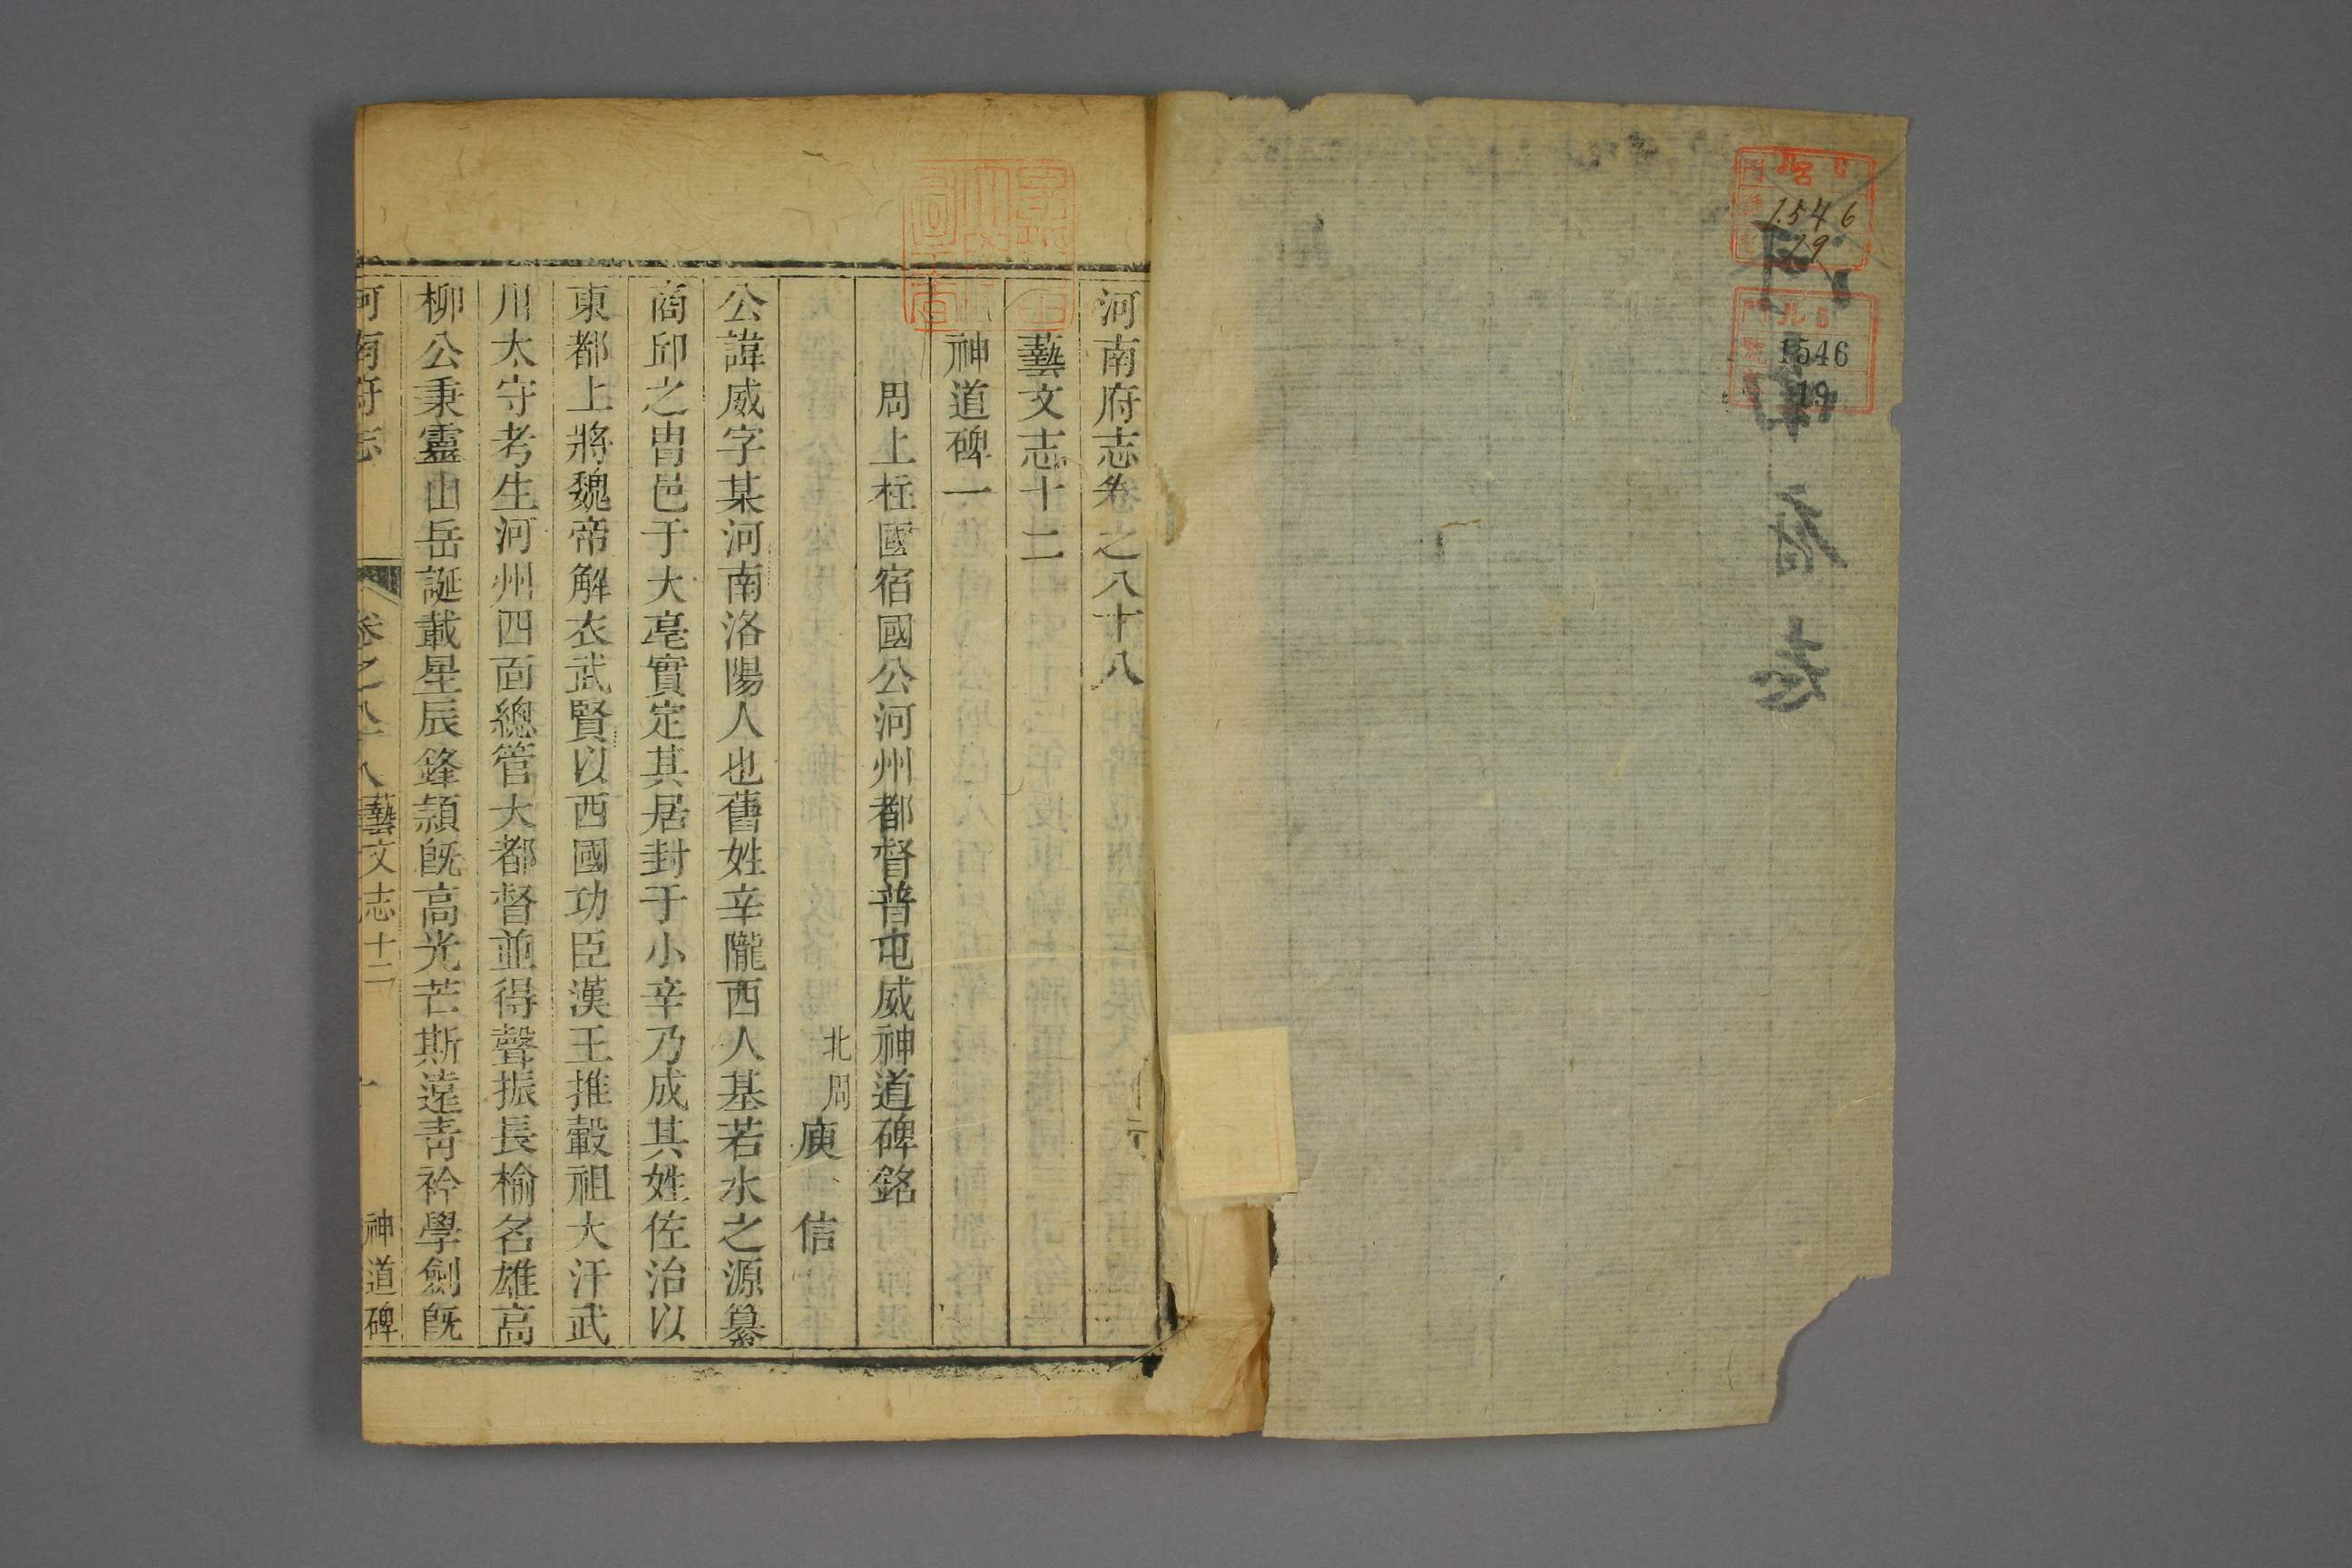 河南府志卷之八十八
藝文志十二
神道碑一
周上柱國宿國公河州都督普屯威神道碑銘
北周庾信
公諱威字某河南洛陽人也舊姓辛隴西人基若水之源纂
商邱之胄邑于大亳實定其居封于小辛乃成其姓佐治以
東都上將魏帝解衣武賢以西國功臣漢王推轂祖大汗武
川太守考生河州四面總管大都督並得聲振長榆名雄高
柳公秉靈山岳誕載星辰鋒穎旣高光芒斯遠靑衿學劍旣
河南府志 卷之八十八 藝文志十二 一 神道碑
1546
19
1546
19